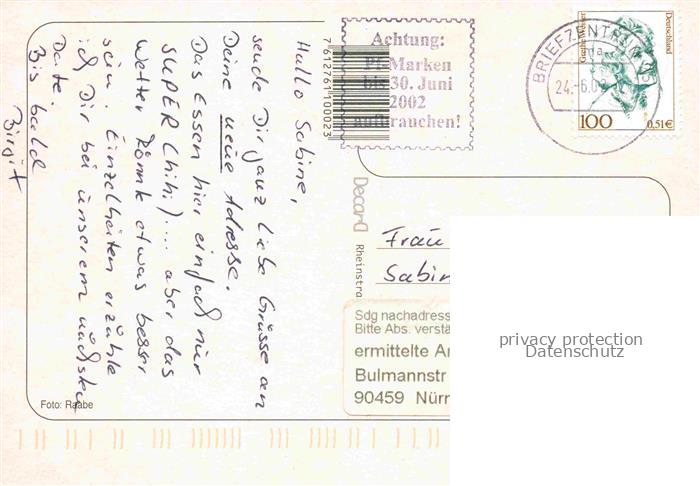 Hallo Sabine,
sende Dir ganz liebe Grüsse an
Deine neue Adresse.
Das Essen hier einfach nur
SUPER (hihi)... aber das
Wetter könnte etwas besser
sein. Einzelheiten erzähle
ich Dir bei unserem nächsten
Date.
Bis bald
Birgit
Foto: Raabe
7612761100023
Achtung:
Pf-Marken
bis 30. Juni
2002
aufbrauchen!
BRIEFZENTRUM
24.-6.0
Deutschland
100
0,51€
Rheinstra
Frau
Sabin
Sdg nachadress
Bitte Abs. verstä
ermittelte An
Bulmannstr
90459 Nürn
privacy protection
Datenschutz